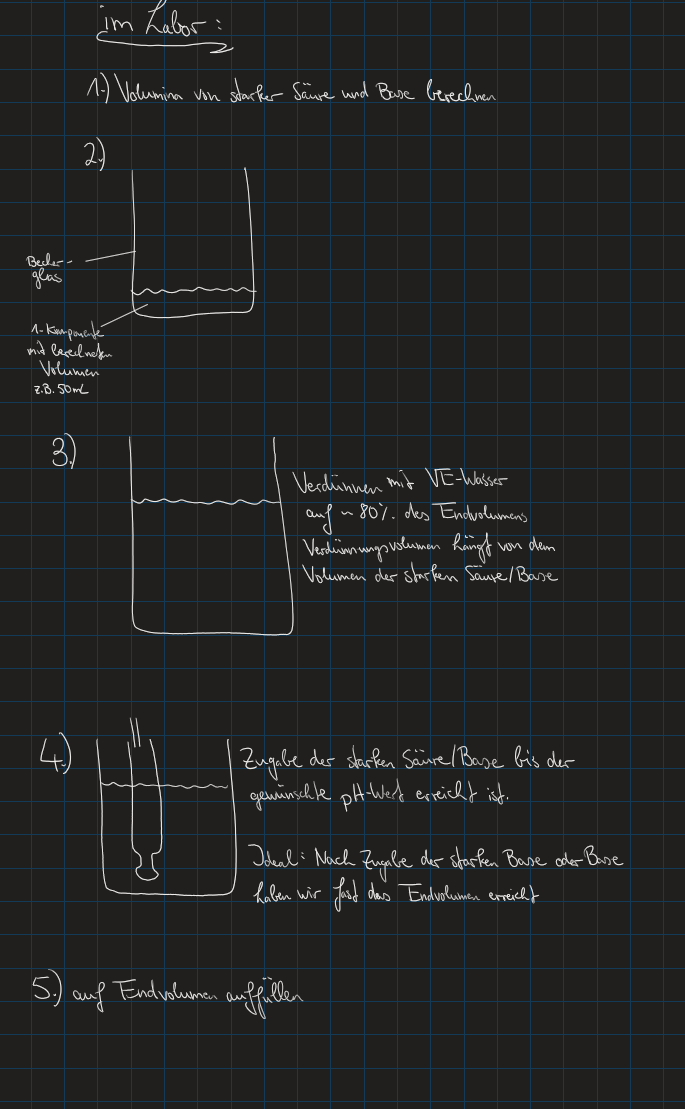 im Labor:
1.) Volumina von starker Säure und Base berechnen
2.)
Becher-
glas
1-Komponente
mit berechneten
Volumen
z.B. 50mL
3.)
Verdünnen mit VE-Wasser
auf ~80% des Endvolumens
Verdünnungsvolumen hängt von dem
Volumen der starken Säure/Base
4.)
Zugabe der starken Säure/Base bis der
gewünschte pH-Wert erreicht ist.
Ideal: Nach Zugabe der starken Base oder Base
haben wir fast das Endvolumen erreicht
5.) auf Endvolumen auffüllen